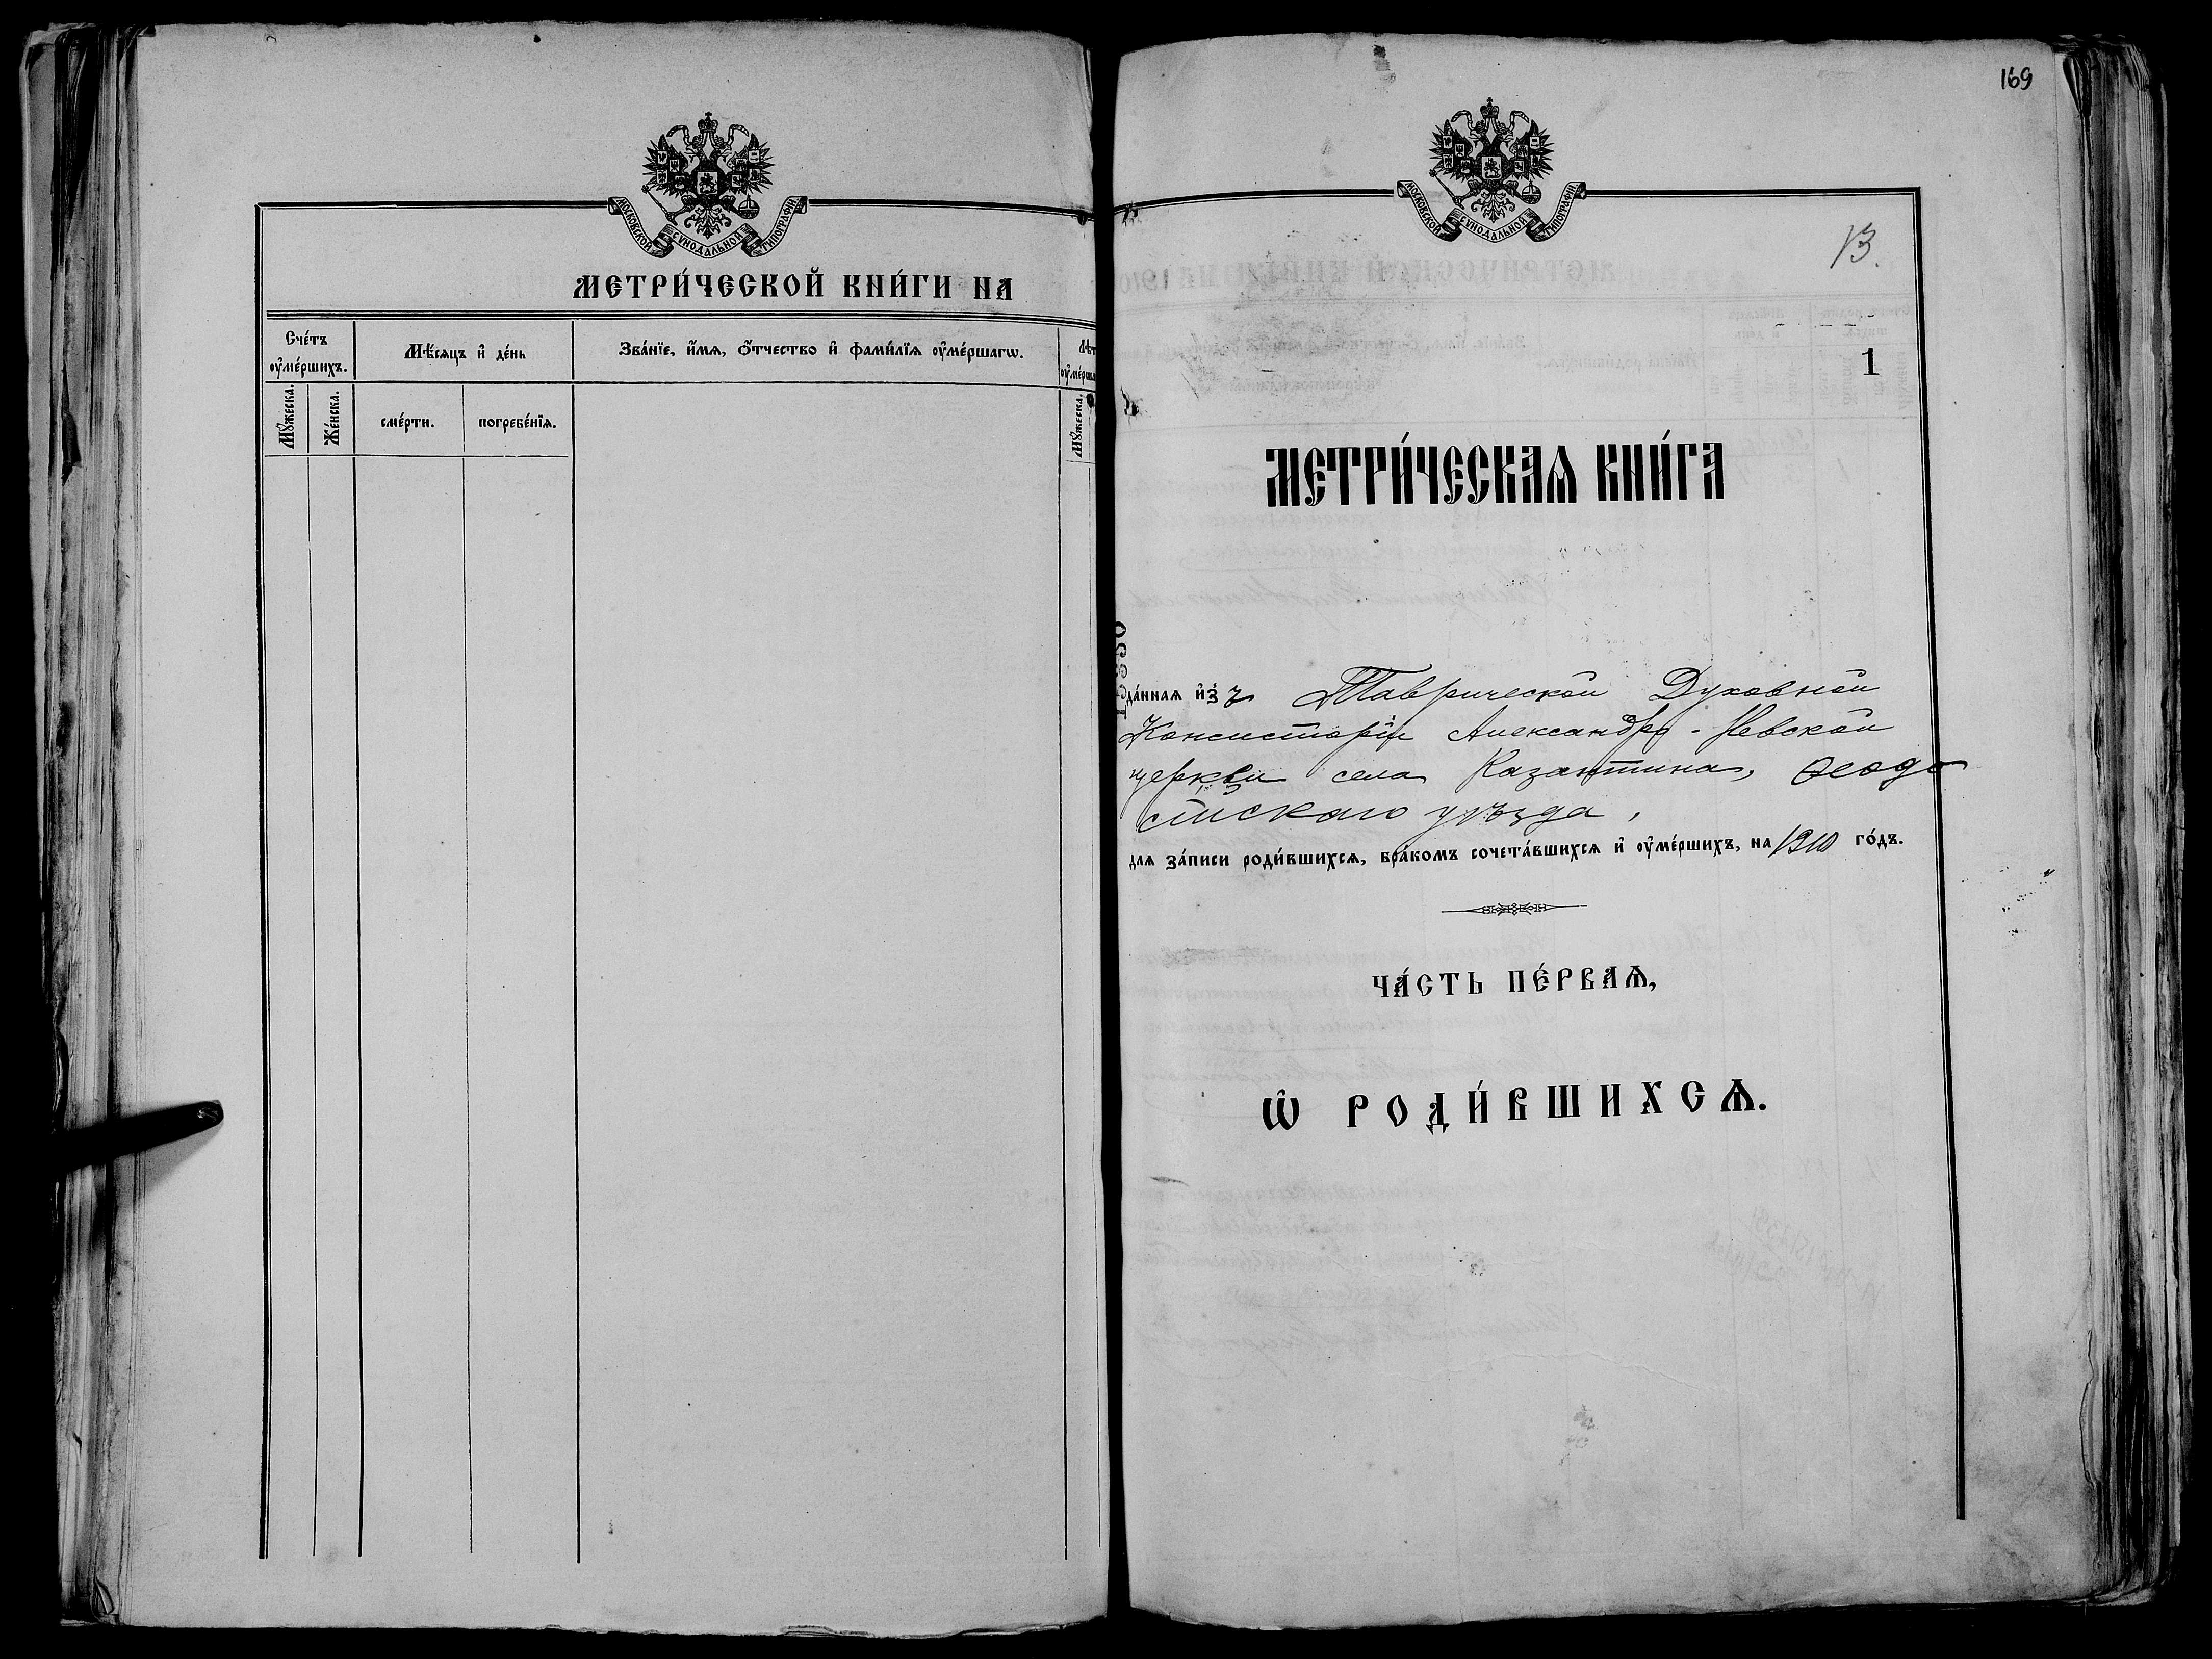 МОСКОВСКОЙ СѴНОДАЛЬНОЙ ТИПОГРАФІИ
МЕТРИ́ЧЕСКОЙ КНИ́ГИ НА
Сче́тъ ᲂу҆ме́ршихъ.
Мѣ́сяцъ и҆ де́нь
Зва́нїе, и҆́мѧ, ѻ҆́тчество и҆ фами́лїѧ ᲂу҆ме́ршагѡ.
Мꙋ́жеска.
Же́нска.
сме́рти.
погребе́нїѧ.
Мꙋ́жеска.
169
МОСКОВСКОЙ СѴНОДАЛЬНОЙ ТИПОГРАФІИ
13.
1
МЕТРИ́ЧЕСКАѦ КНИ́ГА
да́ннаѧ и҆зъ Таврической Духовной
Консисторіи Александро-Невской
церкви села Казантипа, Ѳеодо
сійскаго уѣзда,
длѧ за́писи роди́вшихсѧ, бра́комъ сочета́вшихсѧ и҆ ᲂу҆ме́ршихъ, на 1910 го́дъ.
ЧА́СТЬ ПЕ́РВАѦ,
Ѽ РОДИ́ВШИХСѦ.